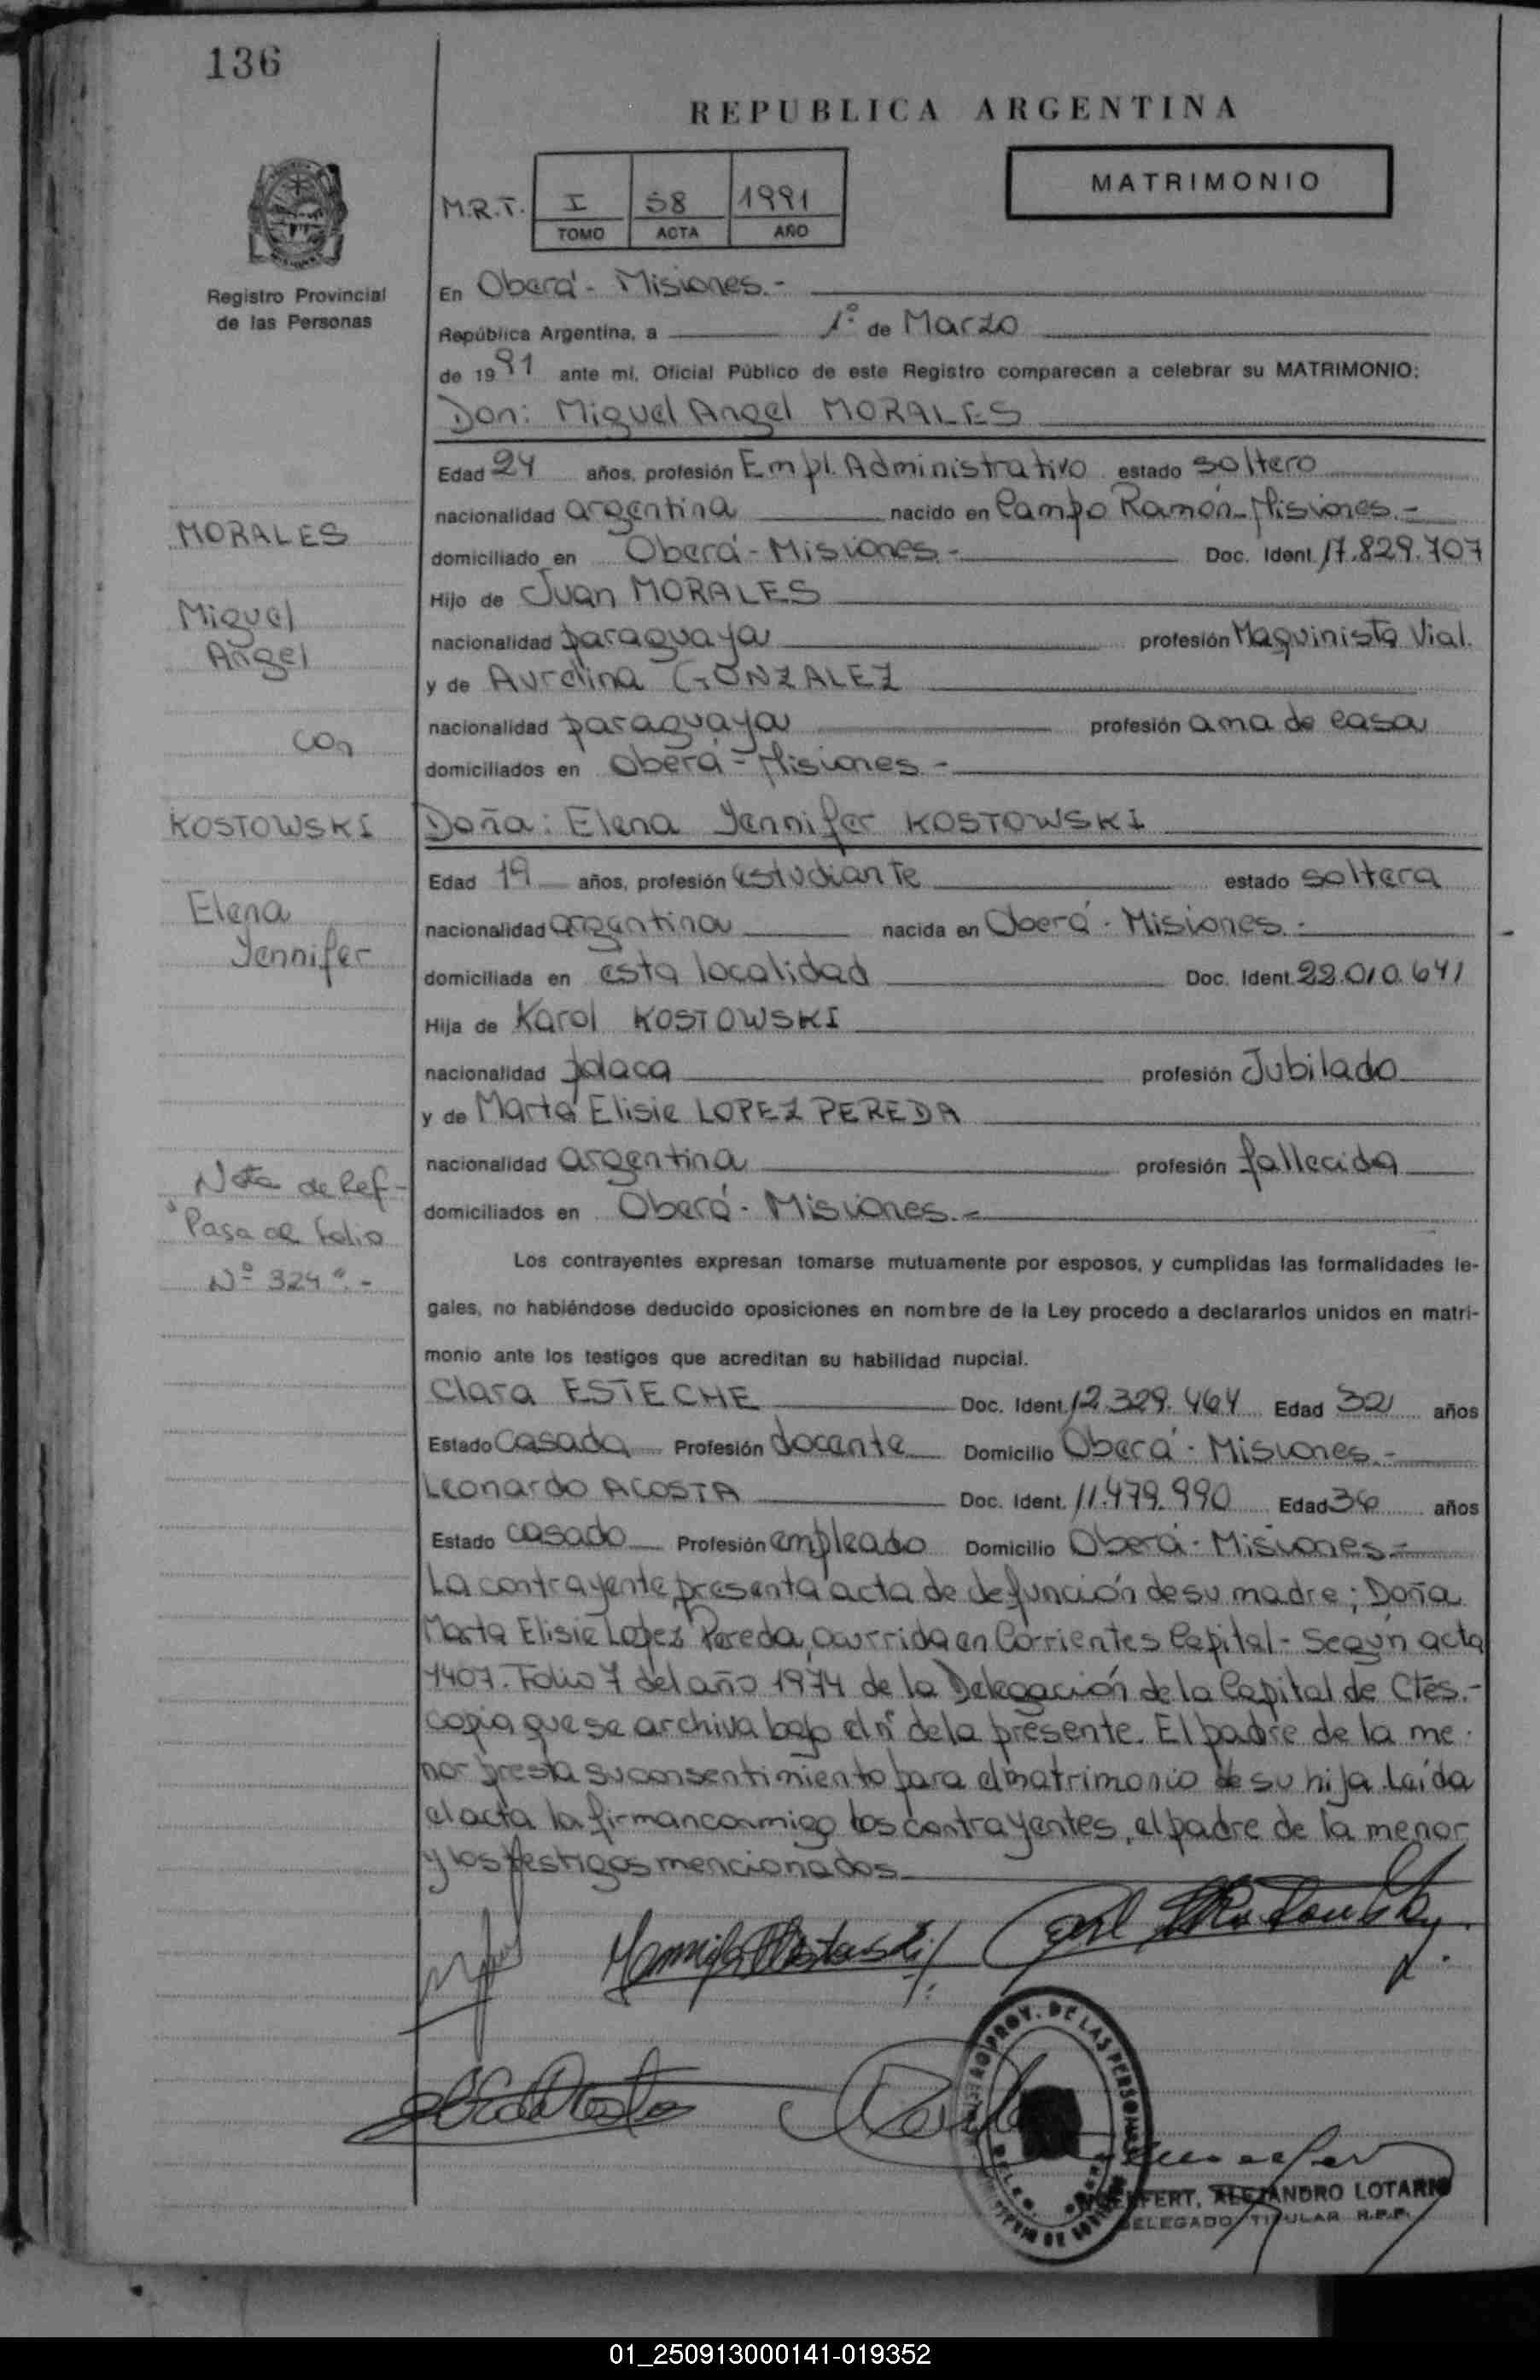 136
REPUBLICA ARGENTINA
MATRIMONIO
M.R.T. I 58 1991
TOMO ACTA AÑO
Registro Provincial
de las Personas
En Oberá - Misiones.-
República Argentina, a 1º de Marzo
de 1991 ante mi, Oficial Público de este Registro comparecen a celebrar su MATRIMONIO:
Don: Miguel Angel MORALES
Edad 24 años, profesión Empl. Administrativo estado soltero
nacionalidad argentina nacido en Campo Ramón - Misiones.-
domiciliado en Oberá - Misiones - Doc. Ident. 17.829.707
Hijo de Juan MORALES
nacionalidad paraguaya profesión Maquinista Vial.
y de Aurelina GONZALEZ
nacionalidad paraguaya profesión ama de casa
domiciliados en Oberá - Misiones -
MORALES
Miguel
Angel
con
KOSTOWSKI
Elena
Yennifer
Doña: Elena Yennifer KOSTOWSKI
Edad 19 años, profesión estudiante estado soltera
nacionalidad argentina nacida en Oberá - Misiones.-
domiciliada en esta localidad Doc. Ident. 22.010.641
Hija de Karol KOSTOWSKI
nacionalidad polaca profesión Jubilado
y de Marta Elisie LOPEZ PEREDA
nacionalidad argentina profesión fallecida
domiciliados en Oberá - Misiones.-
Nota de Ref-
"Pasa al folio
Nº 324".-
Los contrayentes expresan tomarse mutuamente por esposos, y cumplidas las formalidades le-
gales, no habiéndose deducido oposiciones en nombre de la Ley procedo a declararlos unidos en matri-
monio ante los testigos que acreditan su habilidad nupcial.
Clara ESTECHE Doc. Ident. 12.329.464 Edad 32 años
Estado Casada Profesión docente Domicilio Oberá - Misiones.-
Leonardo ACOSTA Doc. Ident. 11.479.990 Edad 36 años
Estado casado Profesión empleado Domicilio Oberá - Misiones.-
La contrayente presenta acta de defunción de su madre; Doña
Marta Elisie Lopez Pereda, ocurrida en Corrientes Capital - Según acta
1407. Folio 7 del año 1974 de la Delegación de la Capital de Ctes.-
copia que se archiva bajo el nº de la presente. El padre de la me-
nor presta su consentimiento para el matrimonio de su hija. Leída
el acta la firman conmigo los contrayentes, el padre de la menor
y los testigos mencionados.
PROV. DE LAS PERSONAS
ALEJANDRO LOTARIO
DELEGADO TITULAR R.P.P.
01_250913000141-019352